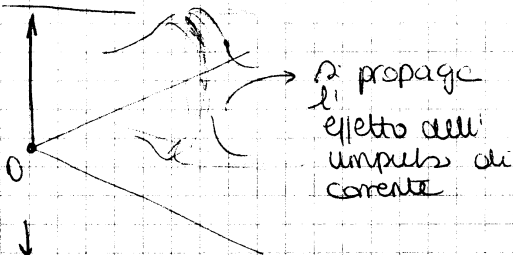 si propaga
l'
effetto dell'
impulso di
corrente
O